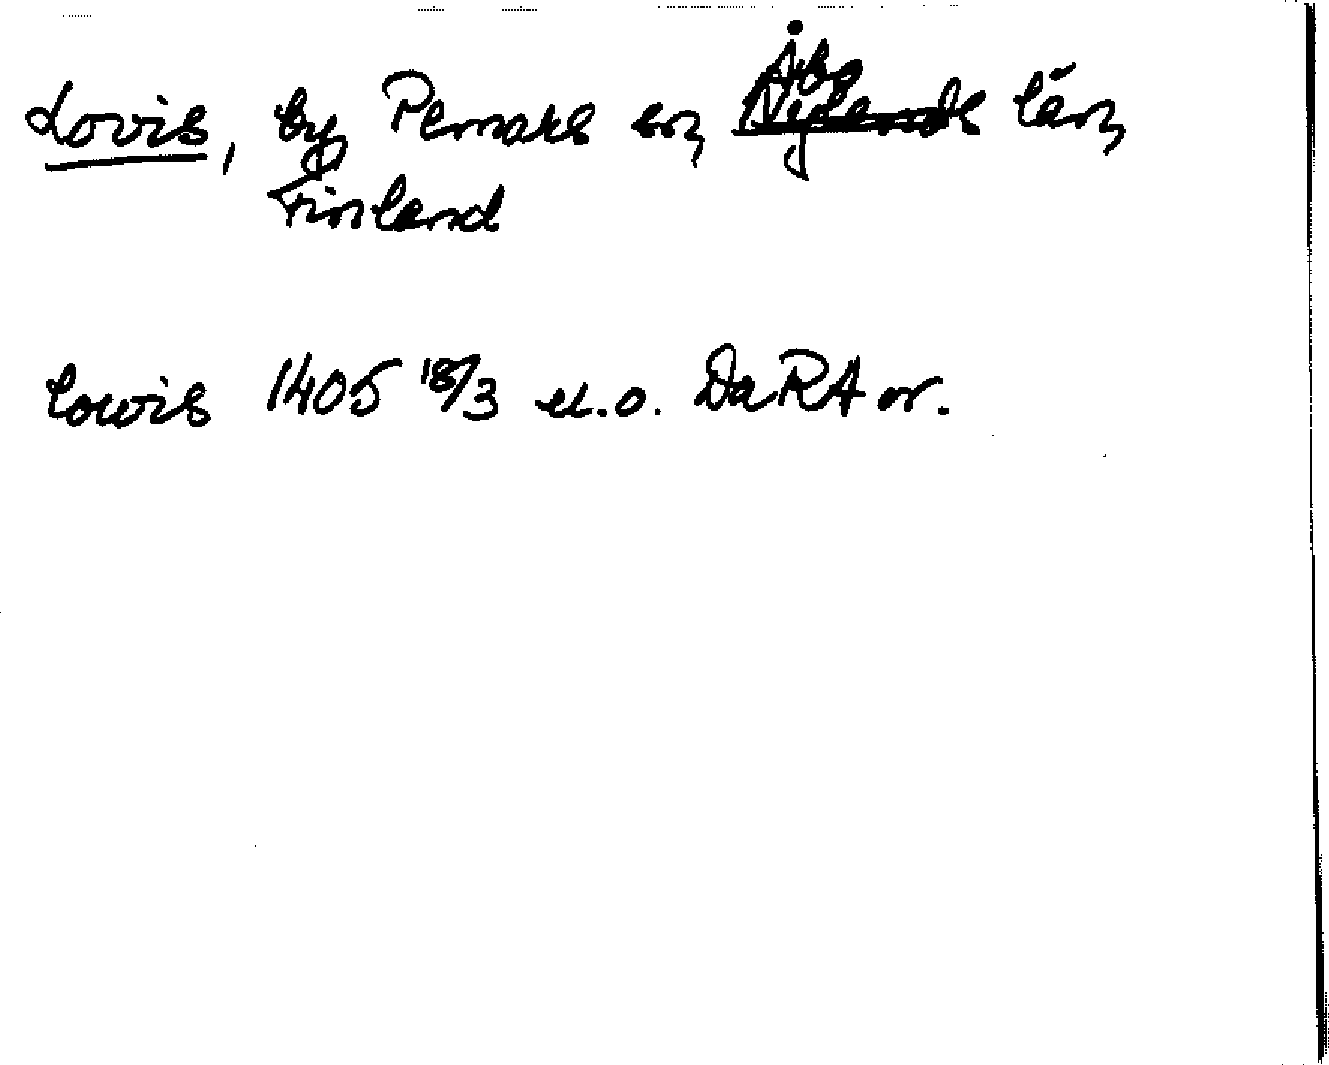 Lovis, by Pemars sn, Åbo län,
Finland
Lowis 1405 18/3 DaRA or.